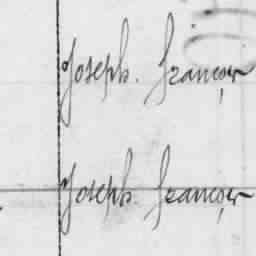 Joseph. françois
Joseph. françois